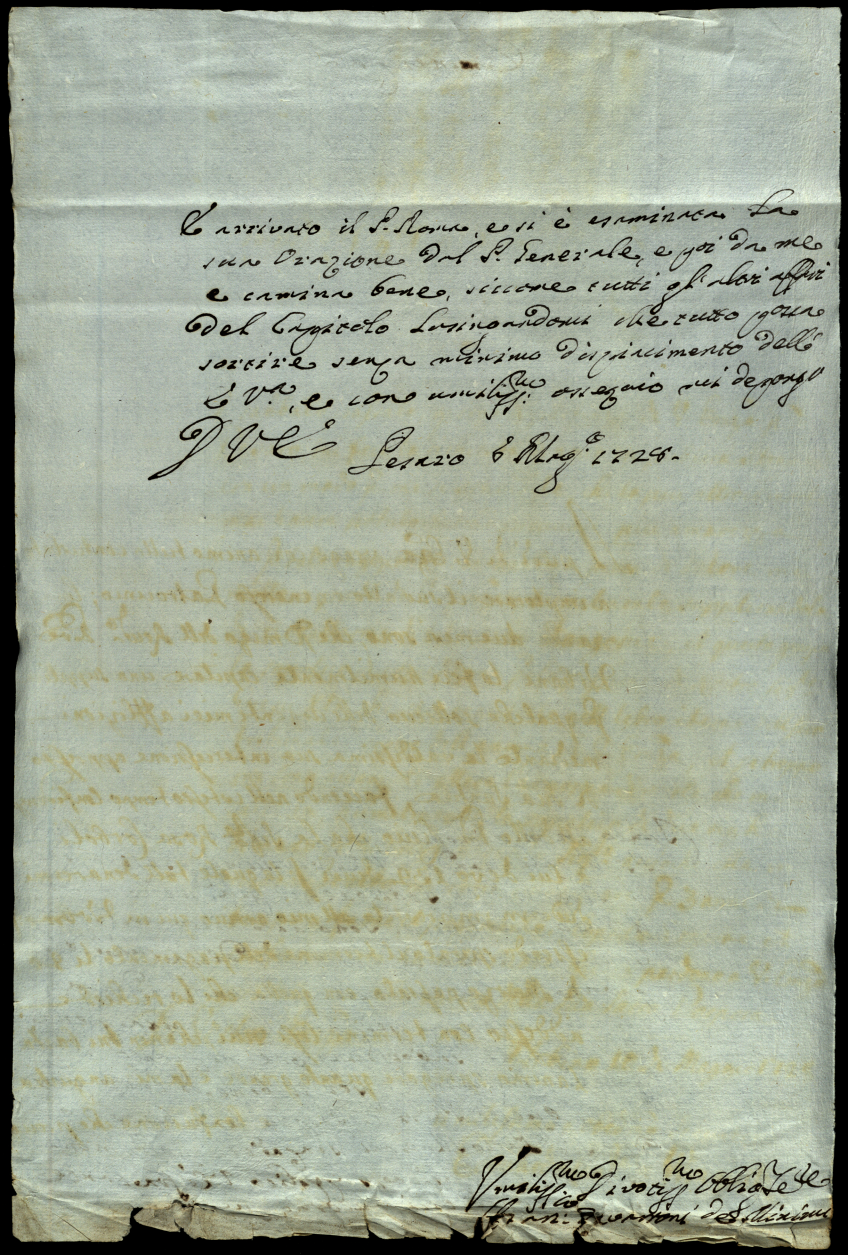 È arrivato il P. Roma, e si è esaminata la
sua Orazione dal P. Generale, e poi da me
e camina bene, siccome tutti gl'altri affari
del Capitolo Lusingandomi che tutto possa
sortire senza minimo dispiacimento dell'
E. Vra, e con umilissmo ossequio mi
D V E
Pesaro 6 Magg.o 1728.
Umilissmo Divotissmo Obbl
de Minimi